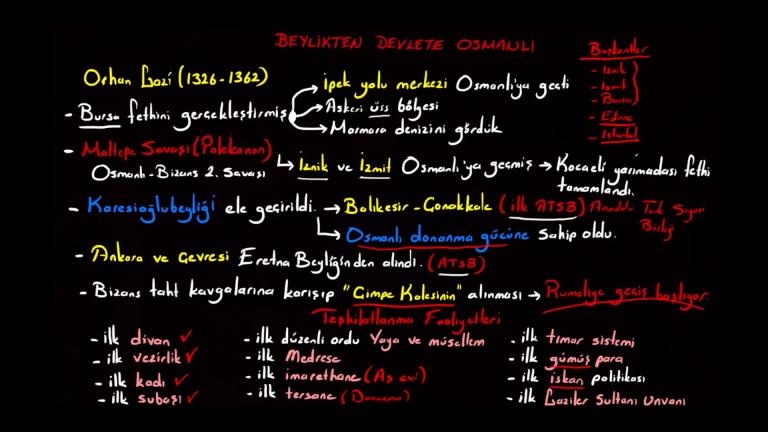 BEYLİKTEN DEVLETE OSMANLI
Başkentler
- İznik
- İzmit
- Bursa
- Edirne
- İstanbul
Orhan Gazi (1326-1362)
- Bursa fethini gerçekleştirmiş
İpek yolu merkezi Osmanlı'ya geçti
Askeri üss bölgesi
Marmara denizini gördük
- Maltepe Savaşı (Palekanon)
Osmanlı-Bizans 2. Savaşı
İznik ve İzmit Osmanlı'ya geçmiş → Kocaeli yarımadası fethi
tamamlandı.
- Karesioğlubeyliği ele geçirildi. → Balıkesir-Çanakkale (ilk ATSB) Anadolu Türk Siyasi
Birliği
Osmanlı donanma gücüne sahip oldu.
- Ankara ve Çevresi Eretna Beyliğinden alındı. (ATSB)
- Bizans taht kavgalarına karışıp "Çimpe Kalesinin" alınması → Rumeliye geçiş başlıyor
Teşkilatlanma Faaliyetleri
- ilk divan ✓
- ilk vezirlik ✓
- ilk kadı ✓
- ilk subaşı ✓
- ilk düzenli ordu Yaya ve müsellem
- ilk Medrese
- ilk imarethane (Aş evi)
- ilk tersane (Donanma)
- ilk tımar sistemi
- ilk gümüş para
- ilk iskan politikası
- ilk Gaziler Sultanı Unvanı